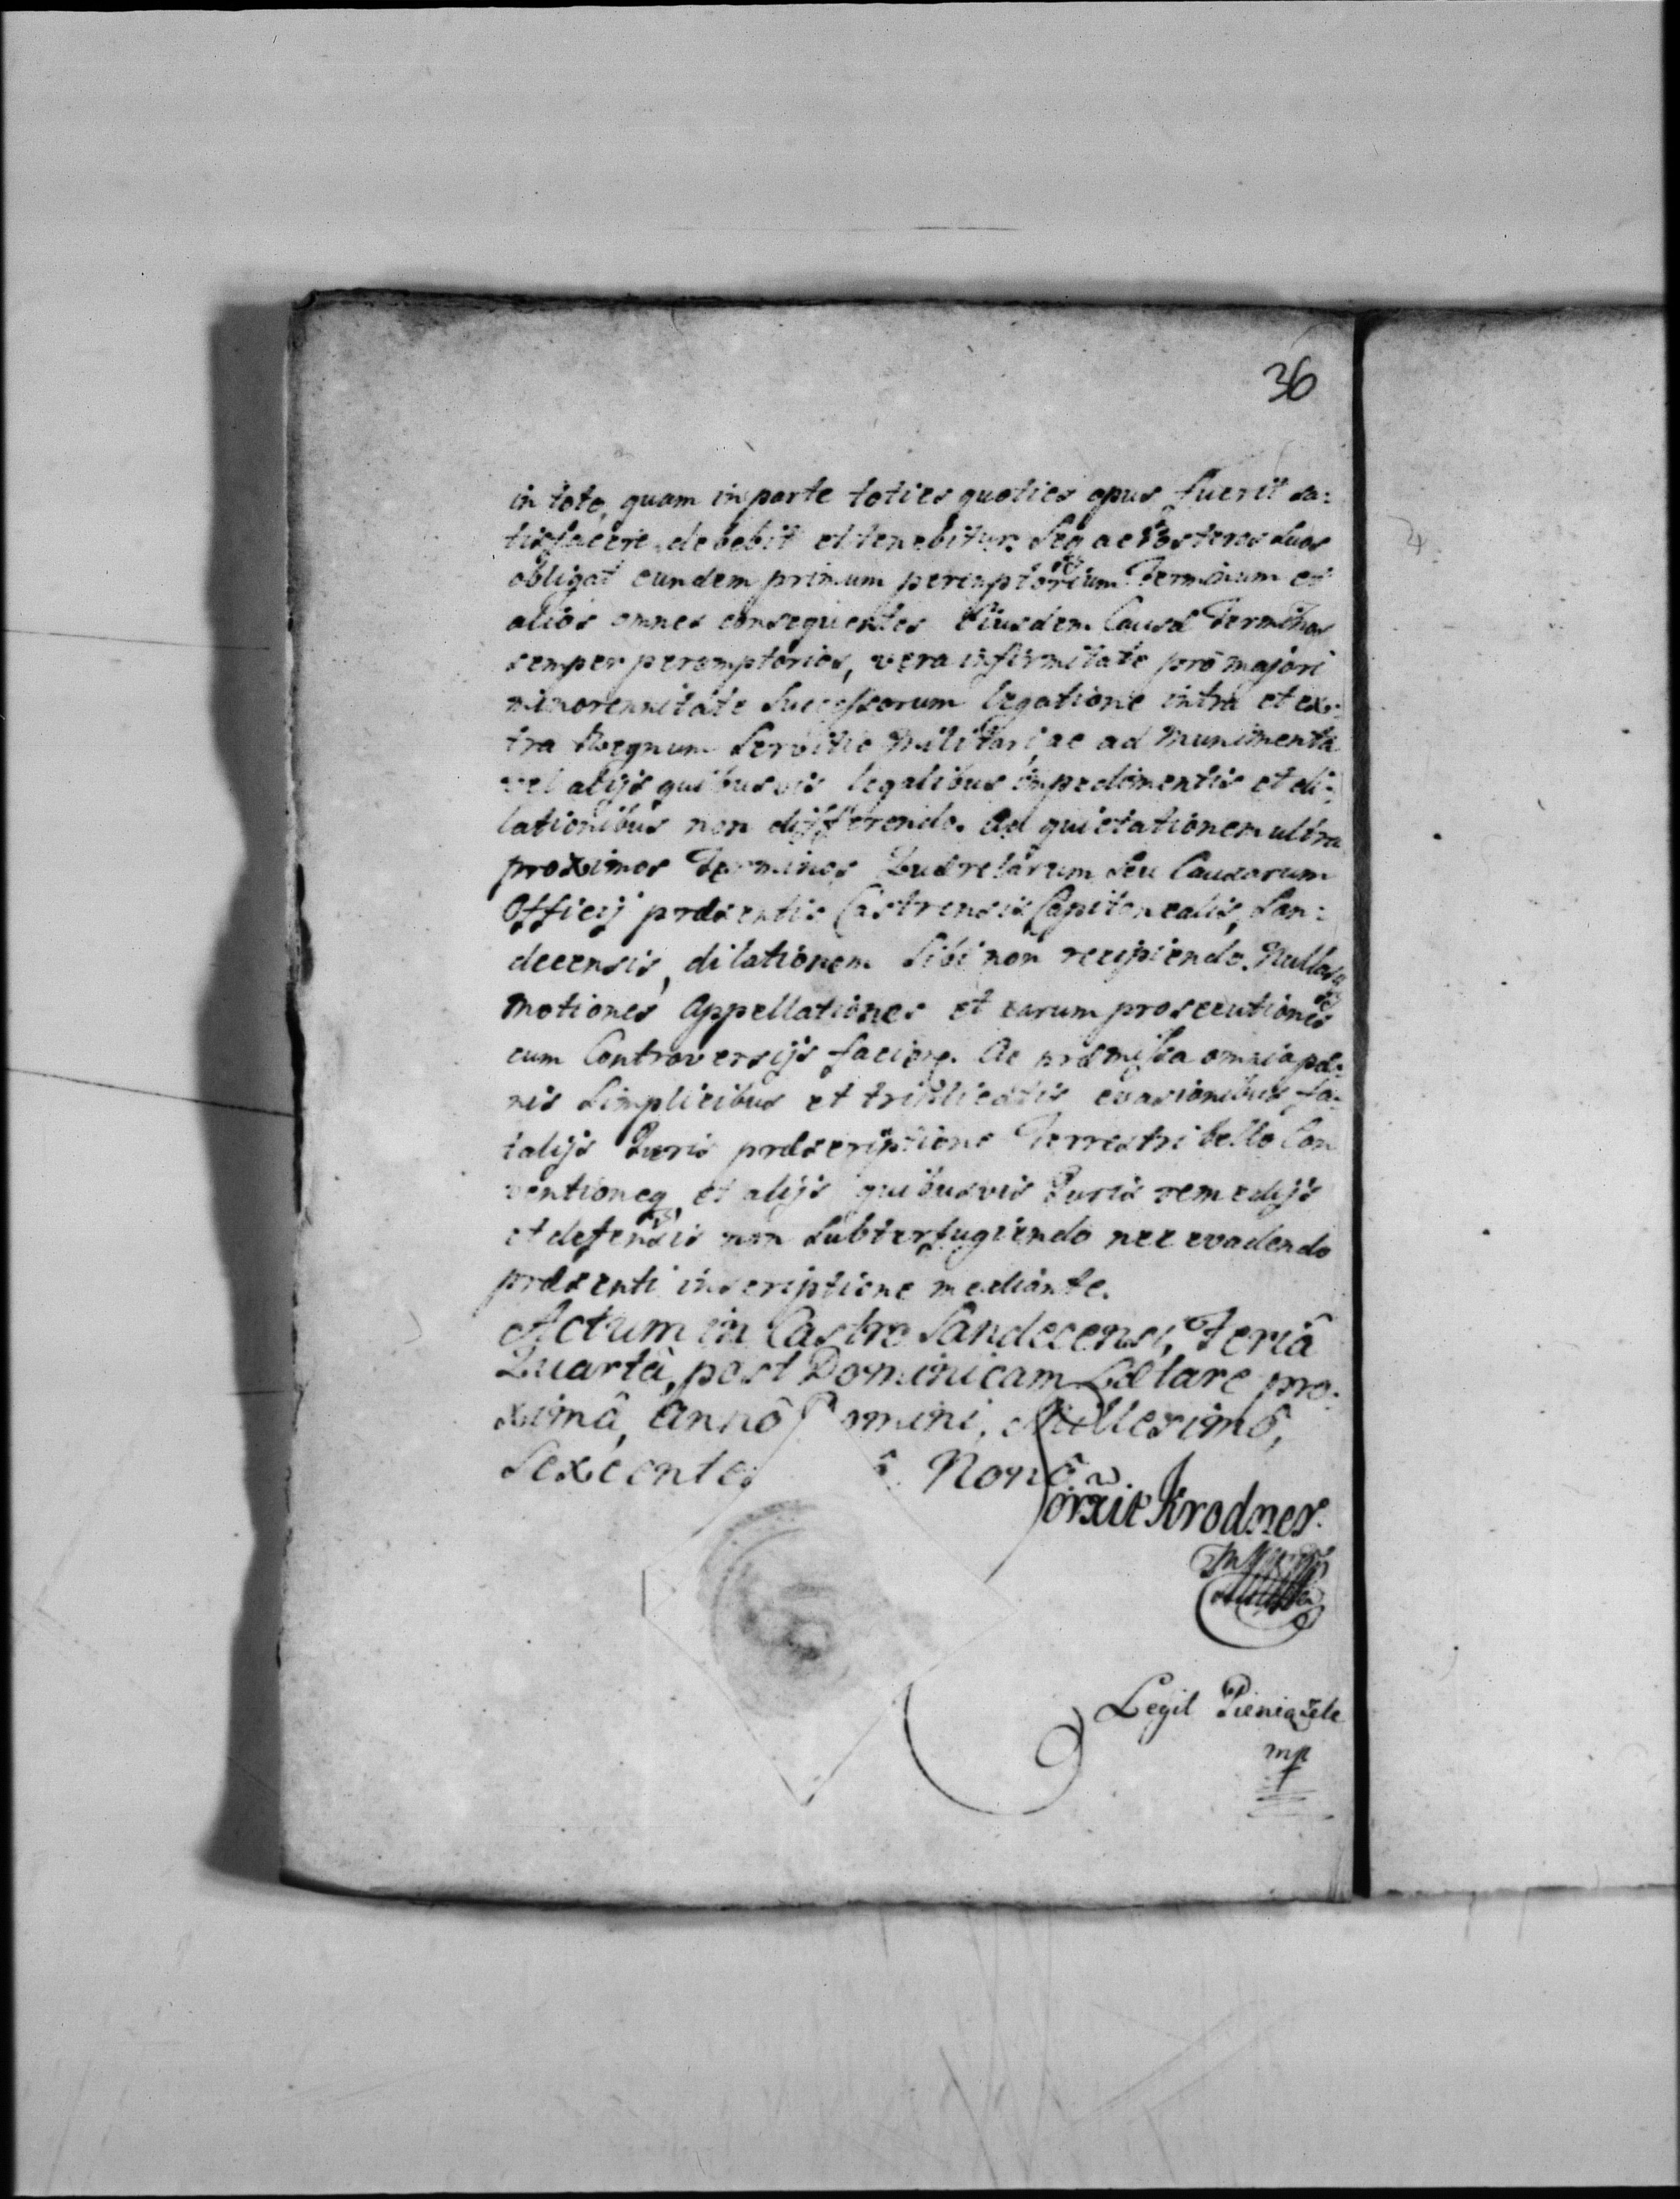 36
in toto, quam in parte toties quoties opus fuerit sa:
tisfacere debebit et tenebitur. Seq ac Posteros Suos
obligat eundem primum peremptorium Terminum et
alios omnes consequentes Eiusdem Causæ Terminos
semper peremptorios, vera infirmitate pro majori
minorennitate Successorum legatione intra et ex:
tra Regnum Servitio Militari, ac ad Munimenta
vel alijs quibusvis legalibus impedimentis et di:
lationibus non differendo. Ad quietationem ultra
proximos Terminos Quærelarum Seu Causarum
Officij præsentis Castrensis Capitanealis, San:
decensis, dilationem Sibi non recipiendo. Nullasq
motiones Appellationes et earum prosecutiones
cum Controversijs facere. Ac præmissa omnia pæ:
nis Simplicibus et triplicatis evasionibus fa:
talijs Juris præscriptione Terrestri bello Con
ventioneq, et alijs quibusvis Juris remedijs
et defensis non Subterfugiendo nec evadendo
præsenti inscriptione mediante.
Actum in Castro Sandecensi, Feriâ
Quartâ, post Dominicam Lætare pro:
ximâ, Annô Domini, Millesimô,
Sexcentes ô Nonô
Corxit Krodner
Legit Pieniążek
mp